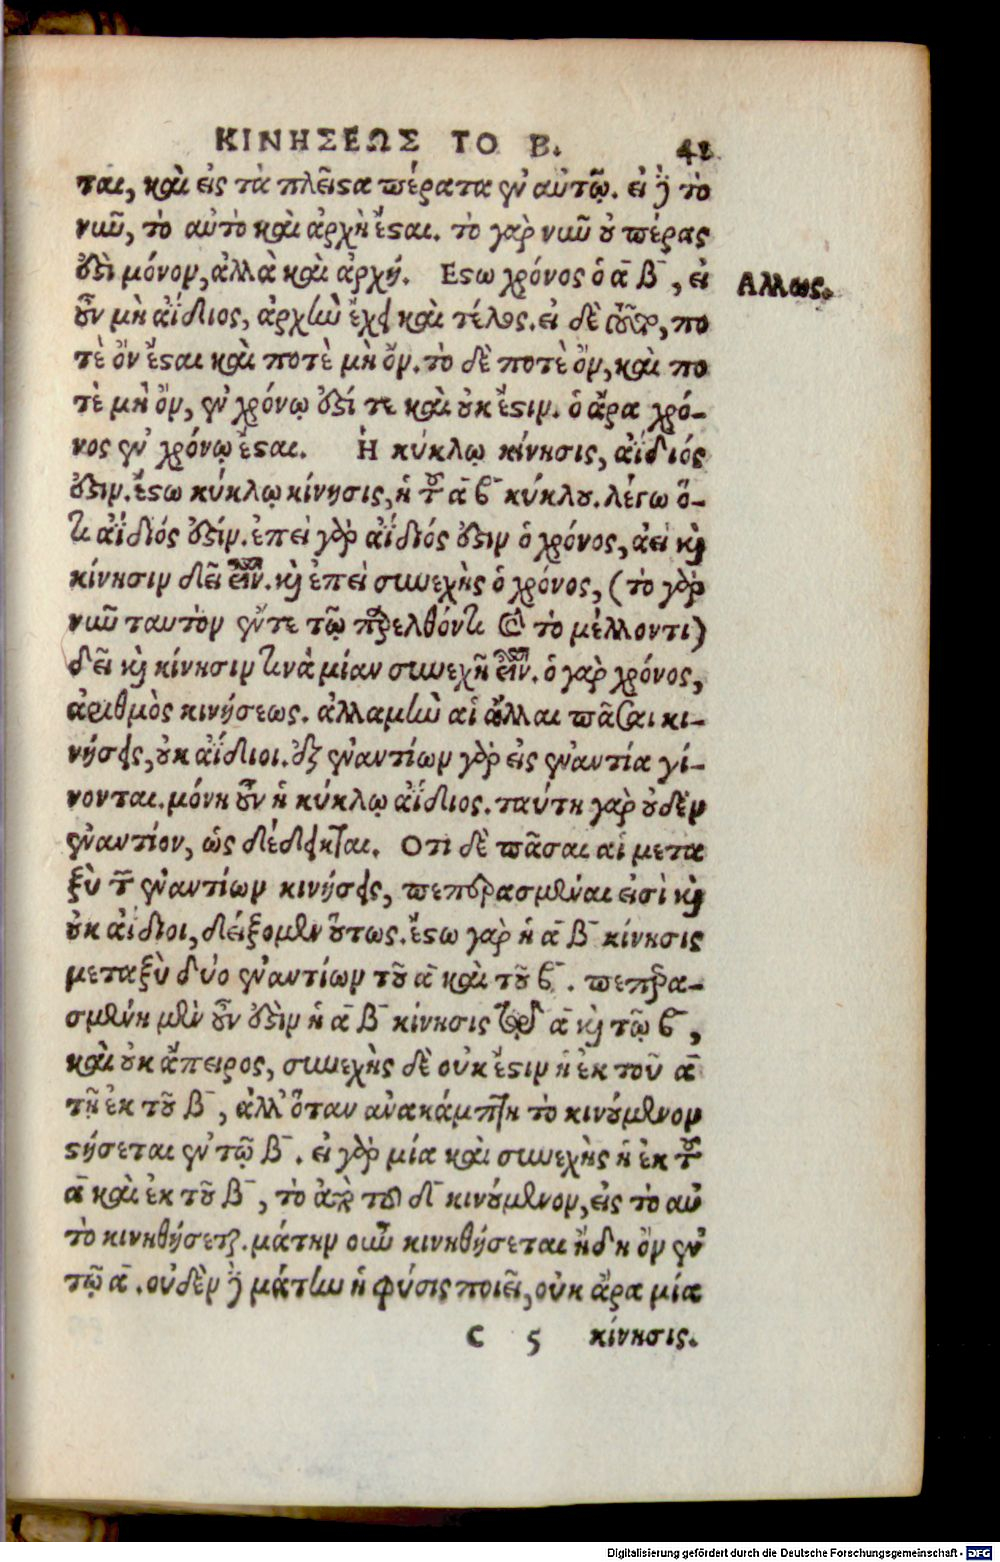 ΚΙΝΗΣΕΩΣ ΤΟ Β. 41
ται, καὶ εἰς τὰ πλεῖστα πέρατα ἐν αὐτῷ. εἰ ἢ τὸ
νῦν, τὸ αὐτὸ καὶ ἀρχὴ ἔσται. τὸ γὰρ νῦν οὐ πέρας
ἐστὶ μόνον, ἀλλὰ καὶ ἀρχή. Εστω χρόνος ὁ α̅ β̅, εἰ
Αλλως.
οὖν μὴ ἀΐδιος, ἀρχὴν ἔχει καὶ τέλος. εἰ δὲ τοῦτο, πο
τὲ ὂν ἔσται καὶ ποτὲ μὴ ὄν. τὸ δὲ ποτὲ ὄν, καὶ πο
τὲ μὴ ὄν, ἐν χρόνῳ ἐστί τε καὶ οὐκ ἔστιν. ὁ ἄρα χρό-
νος ἐν χρόνῳ ἔσται. Ἡ κύκλῳ κίνησις, ἀΐδιός
ἐστιν. ἔστω κύκλῳ κίνησις, ἡ τοῦ α̅ β̅ κύκλου. λέγω ὅ-
τι ἀΐδιός ἐστίν. ἐπεὶ γὰρ ἀΐδιός ἐστιν ὁ χρόνος, ἀεὶ καὶ
κίνησιν δεῖ εἶναι. καὶ ἐπεὶ συνεχὴς ὁ χρόνος, (τὸ γὰρ
νῦν ταυτὸν ἔν τε τῷ παρελθόντι καὶ τὸ μέλλοντι)
δεῖ καὶ κίνησιν τινὰ μίαν συνεχῆ εἶναι. ὁ γὰρ χρόνος,
ἀριθμὸς κινήσεως. ἀλλαμὴν αἱ ἄλλαι πᾶσαι κι-
νήσεις, οὐκ ἀΐδιοι. ἐξ ἐναντίων γὰρ εἰς ἐναντία γί-
νονται. μόνη οὖν ἡ κύκλῳ ἀΐδιος. ταύτη γὰρ οὐδὲν
ἐναντίον, ὡς δέδεικται. Οτι δὲ πᾶσαι αἱ μετα
ξὺ τῶν ἐναντίων κινήσεις, πεπερασμέναι εἰσὶ καὶ
οὐκ ἀΐδιοι, δείξομεν οὕτως. ἔστω γὰρ ἡ α̅ β̅ κίνησις
μεταξὺ δύο ἐναντίων τοῦ α̅ καὶ τοῦ β̅. πεπερα-
σμένη μὲν οὖν ἐστὶν ἡ α̅ β̅ κίνησις τῷ α̅ καὶ τῷ β̅,
καὶ οὐκ ἄπειρος, συνεχὴς δὲ οὐκ ἔστιν ἡ ἐκ τοῦ α̅
τῇ ἐκ τοῦ β̅, ἀλλ' ὅταν ἀνακάμπτῃ τὸ κινούμενον
στήσεται ἐν τῷ β̅. εἰ γὰρ μία καὶ συνεχὴς ἡ ἐκ τοῦ
α̅ καὶ ἐκ τοῦ β̅, τὸ ἀπὸ τοῦ β̅ κινούμενον, εἰς τὸ αὐ
τὸ κινηθήσεται. μάτην οὖν κινηθήσεται ἤδη ὂν ἐν
τῷ α̅. οὐδὲν ἢ μάτην ἡ φύσις ποιεῖ, οὐκ ἄρα μία
C 5 κίνησις.
Digitalisierung gefördert durch die Deutsche Forschungsgemeinschaft - DFG